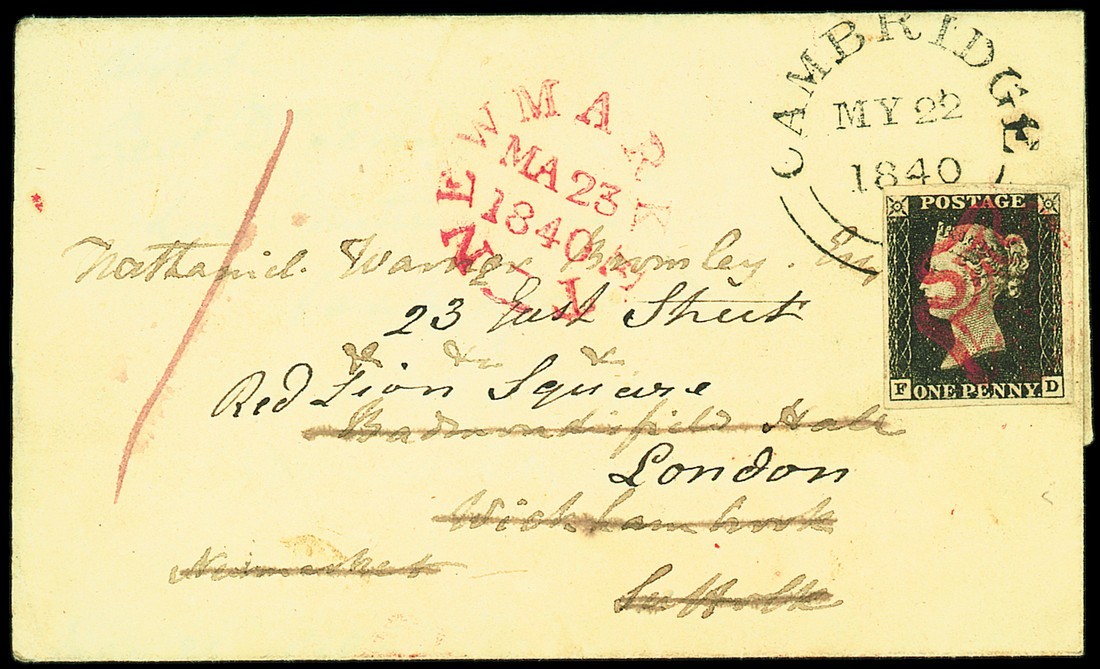 CAMBRIDGE
MY 22
1840
NEWMARKET
MA 23
1840
POSTAGE
F ONE PENNY. D
Nathaniel Warner Bromley. Esq
23 East Street
Red Lion Square
Badmondisfield Hall
London
Wickhambrook
Newmarket
Suffolk